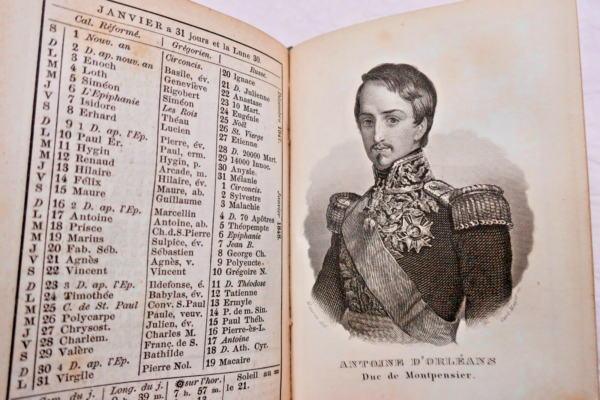 JANVIER a 31 jours et la Lune 30.
Cal. Réformé. Grégorien. Russe.
S 1 Nouv. an Circoncis. 20 Ignace
D 2 D. ap. nouv. an Basile, év. 21 D. Julienne
L 3 Enoch Geneviève 22 Anastase
M 4 Loth Rigobert 23 10 Mart.
M 5 Siméon Siméon 24 Eugénie
J 6 L'Epiphanie Les Rois 25 Noël
V 7 Isidore Théau 26 St. Vierge
S 8 Erhard Lucien 27 Etienne
D 9 1 D. ap. l'Ep. Pierre, év. 28 D. 20000 Mart.
L 10 Paul Er. Paul, erm. 29 14000 Innoc.
M 11 Hygin Hygin, p. 30 Anysie
M 12 Renaud Arcade, m. 31 Mélanie
J 13 Hilaire Hilaire, év. 1 Circoncis.
V 14 Félix Maure, ab. 2 Sylvestre
S 15 Maure Guillaume 3 Malachie
D 16 2 D. ap. l'Ep. Marcellin 4 D. 70 Apôtres
L 17 Antoine Antoine, ab. 5 Théopempte
M 18 Prisce Ch.d.S.Pierre 6 Epiphanie
M 19 Marius Sulpice, év. 7 Jean B.
J 20 Fab. Séb. Sébastien 8 George Ch.
V 21 Agnès Agnès, v. 9 Polyeucte
S 22 Vincent Vincent 10 Grégoire N.
D 23 3 D. ap. l'Ep. Ildefonse, é. 11 D. Théodose
L 24 Timothée Babylas, év. 12 Tatienne
M 25 C. de St. Paul Conv. S. Paul 13 Ermyle
M 26 Polycarpe Paule, veuv. 14 P. de m. Sin.
J 27 Chrysost. Julien, év. 15 Paul Théb.
V 28 Charlem. Charles M. 16 Pierre-ès-L.
S 29 Valère Franç. de S. 17 Antoine
D 30 4 D. ap. l'Ep. Bathilde 18 D. Ath. Cyr.
L 31 Virgile Pierre Nol. 19 Macaire
Long. du j. sur l'hor. Soleil au
9 h. 39 m. 7 h. 57 m. le 21.
Janvier 1848.
ANTOINE D'ORLÉANS
Duc de Montpensier.